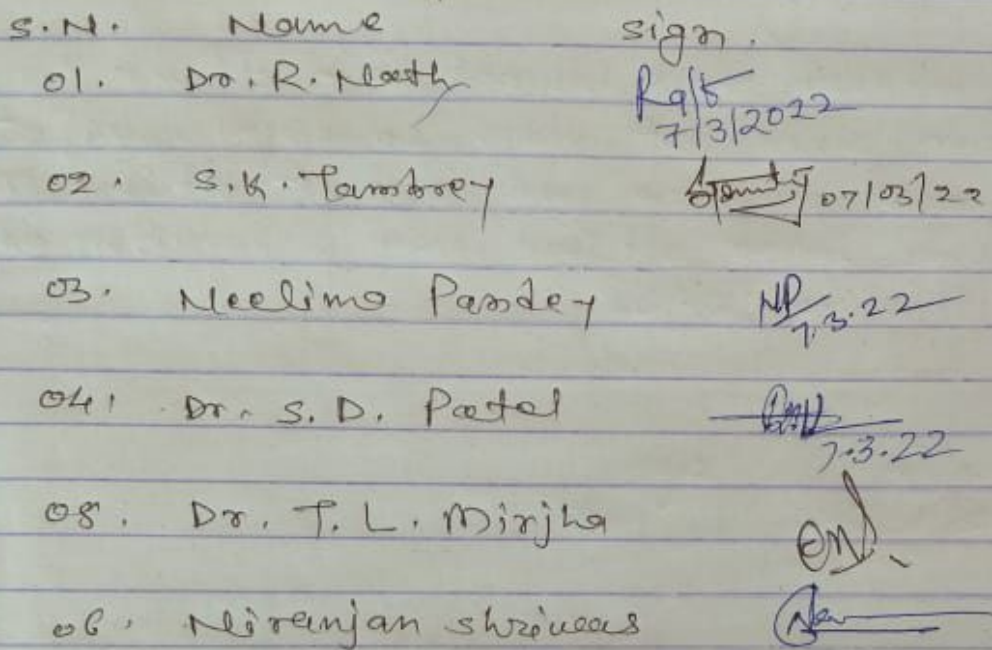 S.N. Name sign.
01. Dr. R. Nath
7/3/2022
02. S.K. Tambrey 07/03/22
03. Neelima Pandey NP 7.3.22
04. Dr. S.D. Patel 7.3.22
05. Dr. T.L. Mirjha
06. Niranjan shrivas